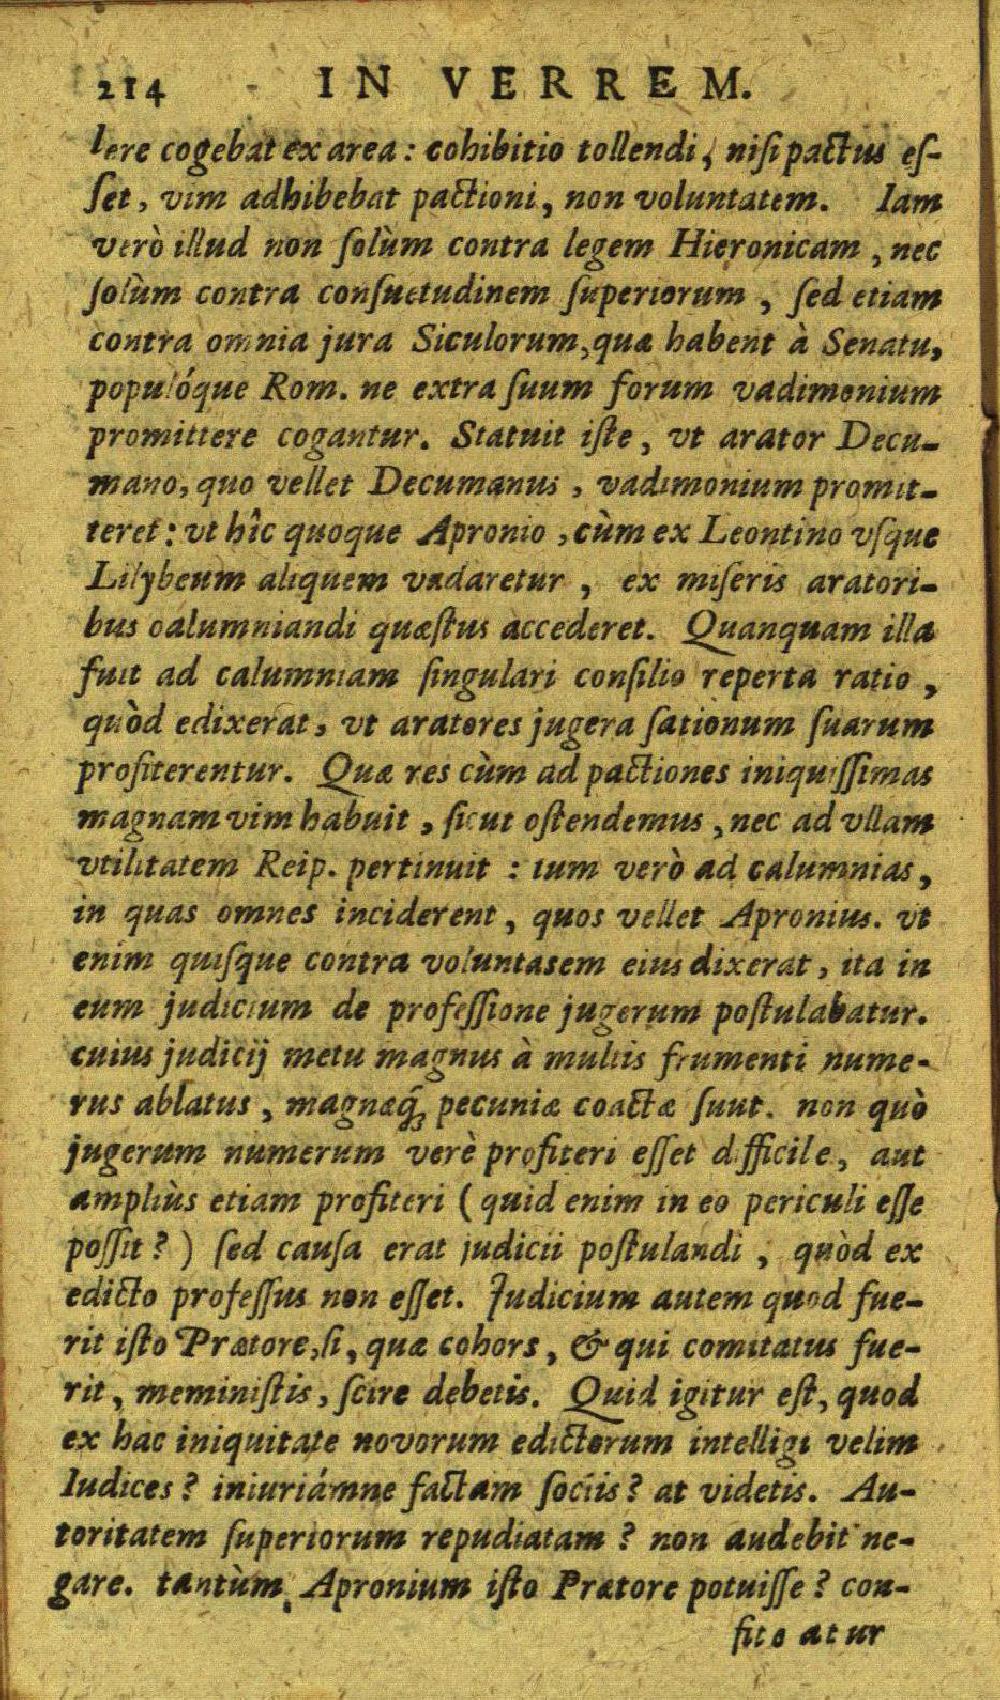 214 IN VERREM.
lere cogebat ex area: cohibitio tollendi, nisi pactus es-
set, vim adhibebat pactioni, non voluntatem. Iam
verò illud non solùm contra legem Hieronicam, nec
solùm contra consuetudinem superiorum, sed etiam
contra omnia jura Siculorum, quæ habent à Senatu,
populóque Rom. ne extra suum forum vadimonium
promittere cogantur. Statuit iste, vt arator Decu-
mano, quo vellet Decumanus, vadimonium promit-
teret: vt hîc quoque Apronio, cùm ex Leontino vsque
Lilybeum aliquem vadaretur, ex miseris aratori-
bus calumniandi quæstus accederet. Quanquam illa
fuit ad calumniam singulari consilio reperta ratio,
quòd edixerat, vt aratores jugera sationum suarum
profiterentur. Quæ res cùm ad pactiones iniquissimas
magnam vim habuit, sicut ostendemus, nec ad vllam
vtilitatem Reip. pertinuit: tum verò ad calumnias,
in quas omnes inciderent, quos vellet Apronius. vt
enim quisque contra voluntasem eius dixerat, ita in
eum judicium de professione jugerum postulabatur.
cuius judicij metu magnus à multis frumenti nume-
rus ablatus, magnæq́; pecuniæ coactæ sunt. non quò
jugerum numerum verè profiteri esset difficile, aut
ampliùs etiam profiteri (quid enim in eo periculi esse
possit?) sed causa erat judicii postulandi, quòd ex
edicto professus non esset. Judicium autem quod fue-
rit isto Prætore, si, quæ cohors, & qui comitatus fue-
rit, meministis, scire debetis. Quid igitur est, quod
ex hac iniquitate novorum edictorum intelligi velim
Iudices? iniuriámne factam sociis? at videtis. Au-
toritatem superiorum repudiatam? non audebit ne-
gare. tantùm Apronium isto Prætore potuisse? con-
fiteatur